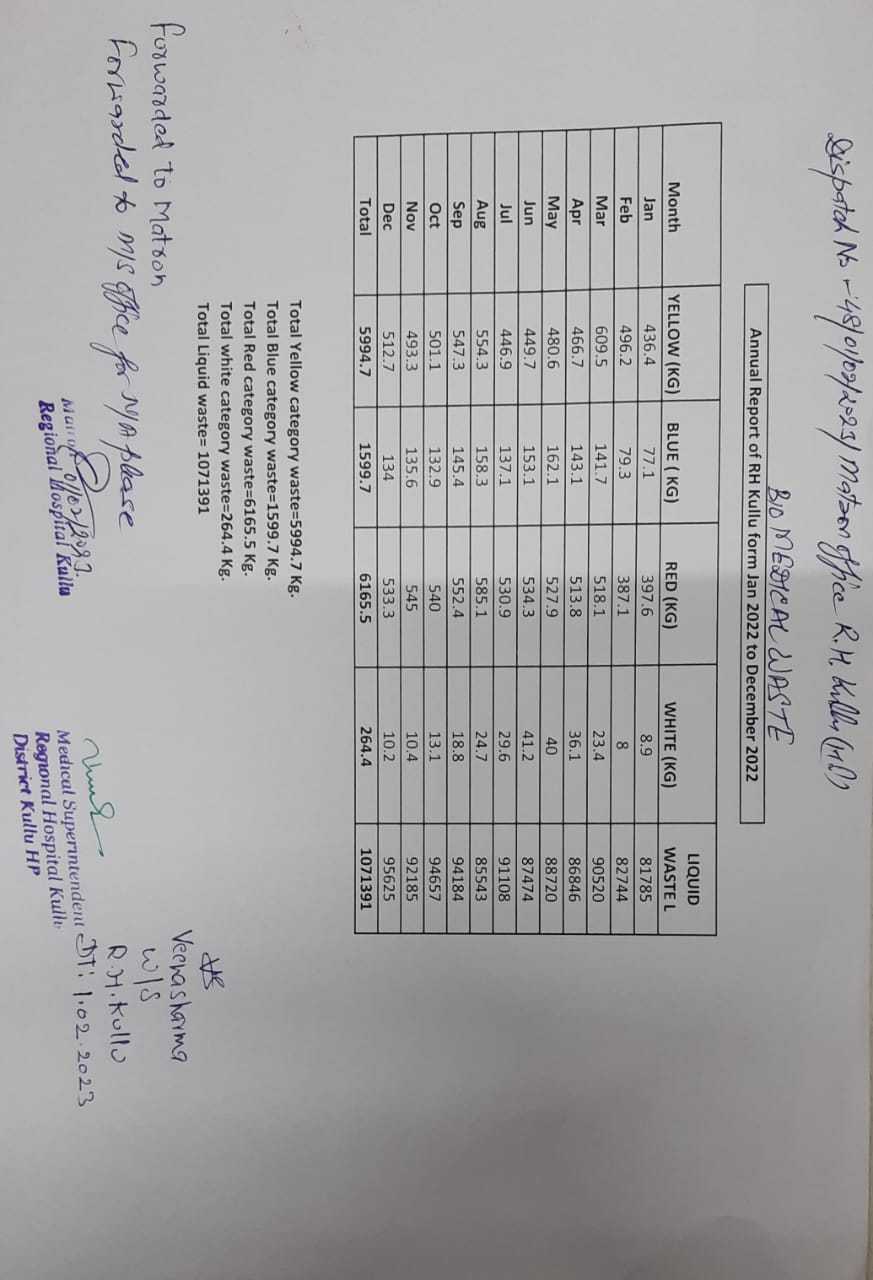 Dispatch No - 48/01/02/2023/ Matron office R.H. Kullu (H.P)
BIO MEDICAL WASTE
Annual Report of RH Kullu form Jan 2022 to December 2022
Month YELLOW (KG) BLUE ( KG) RED (KG) WHITE (KG) LIQUID WASTE L
Jan 436.4 77.1 397.6 8.9 81785
Feb 496.2 79.3 387.1 8 82744
Mar 609.5 141.7 518.1 23.4 90520
Apr 466.7 143.1 513.8 36.1 86846
May 480.6 162.1 527.9 40 88720
Jun 449.7 153.1 534.3 41.2 87474
Jul 446.9 137.1 530.9 29.6 91108
Aug 554.3 158.3 585.1 24.7 85543
Sep 547.3 145.4 552.4 18.8 94184
Oct 501.1 132.9 540 13.1 94657
Nov 493.3 135.6 545 10.4 92185
Dec 512.7 134 533.3 10.2 95625
Total 5994.7 1599.7 6165.5 264.4 1071391
Total Yellow category waste=5994.7 Kg.
Total Blue category waste=1599.7 Kg.
Total Red category waste=6165.5 Kg.
Total white category waste=264.4 Kg.
Total Liquid waste= 1071391
Veena sharma
W/S
R.H. Kullu
DT: 1.02.2023
Forwarded to Matron
Forwarded to M/S office for N/A please
01/02/2023.
Matron
Regional Hospital Kullu
Medical Superintendent
Regional Hospital Kullu
District Kullu HP